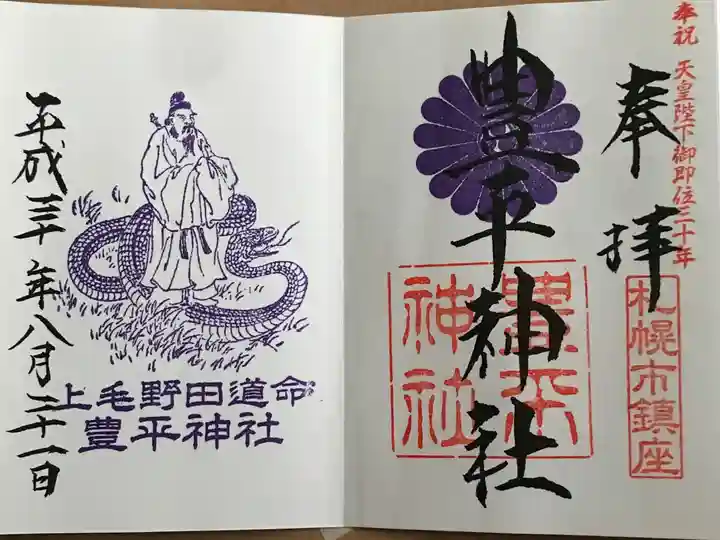 奉祝 天皇陛下御即位三十年
奉拝
札幌市鎮座
豊平神社
豊平
神社
平成三十年八月二十一日
上毛野田道命
豊平神社